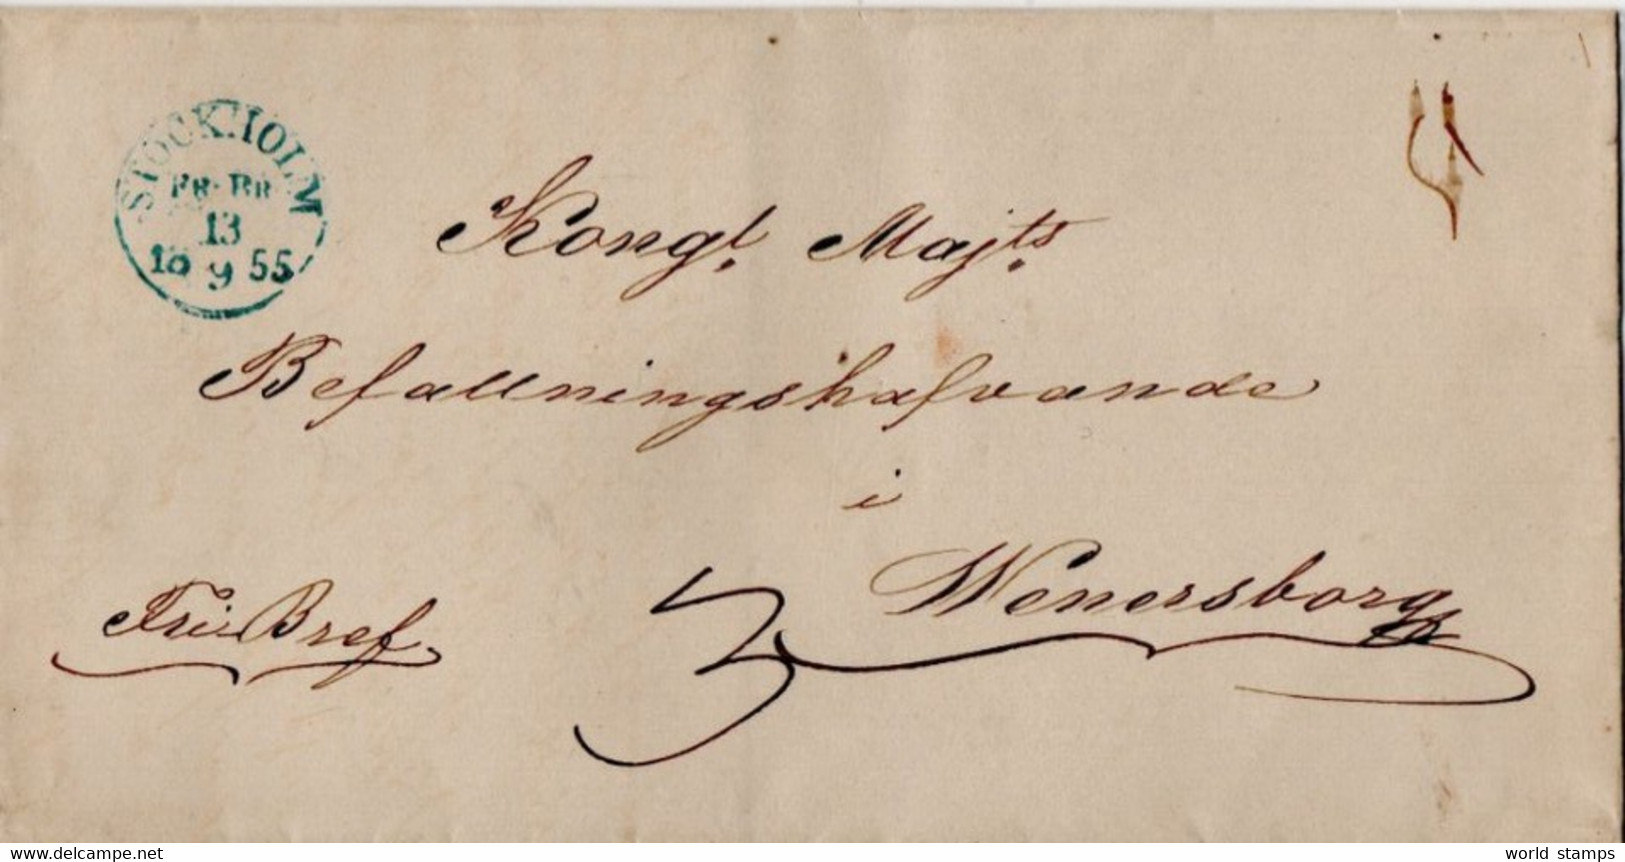 STOCKHOLM
FR. BR
13
18 9 55
Kongl. Majts.
Befallningshafvande
i
Wenersborg
Fri Bref
3
www.delcampe.net
world_stamps